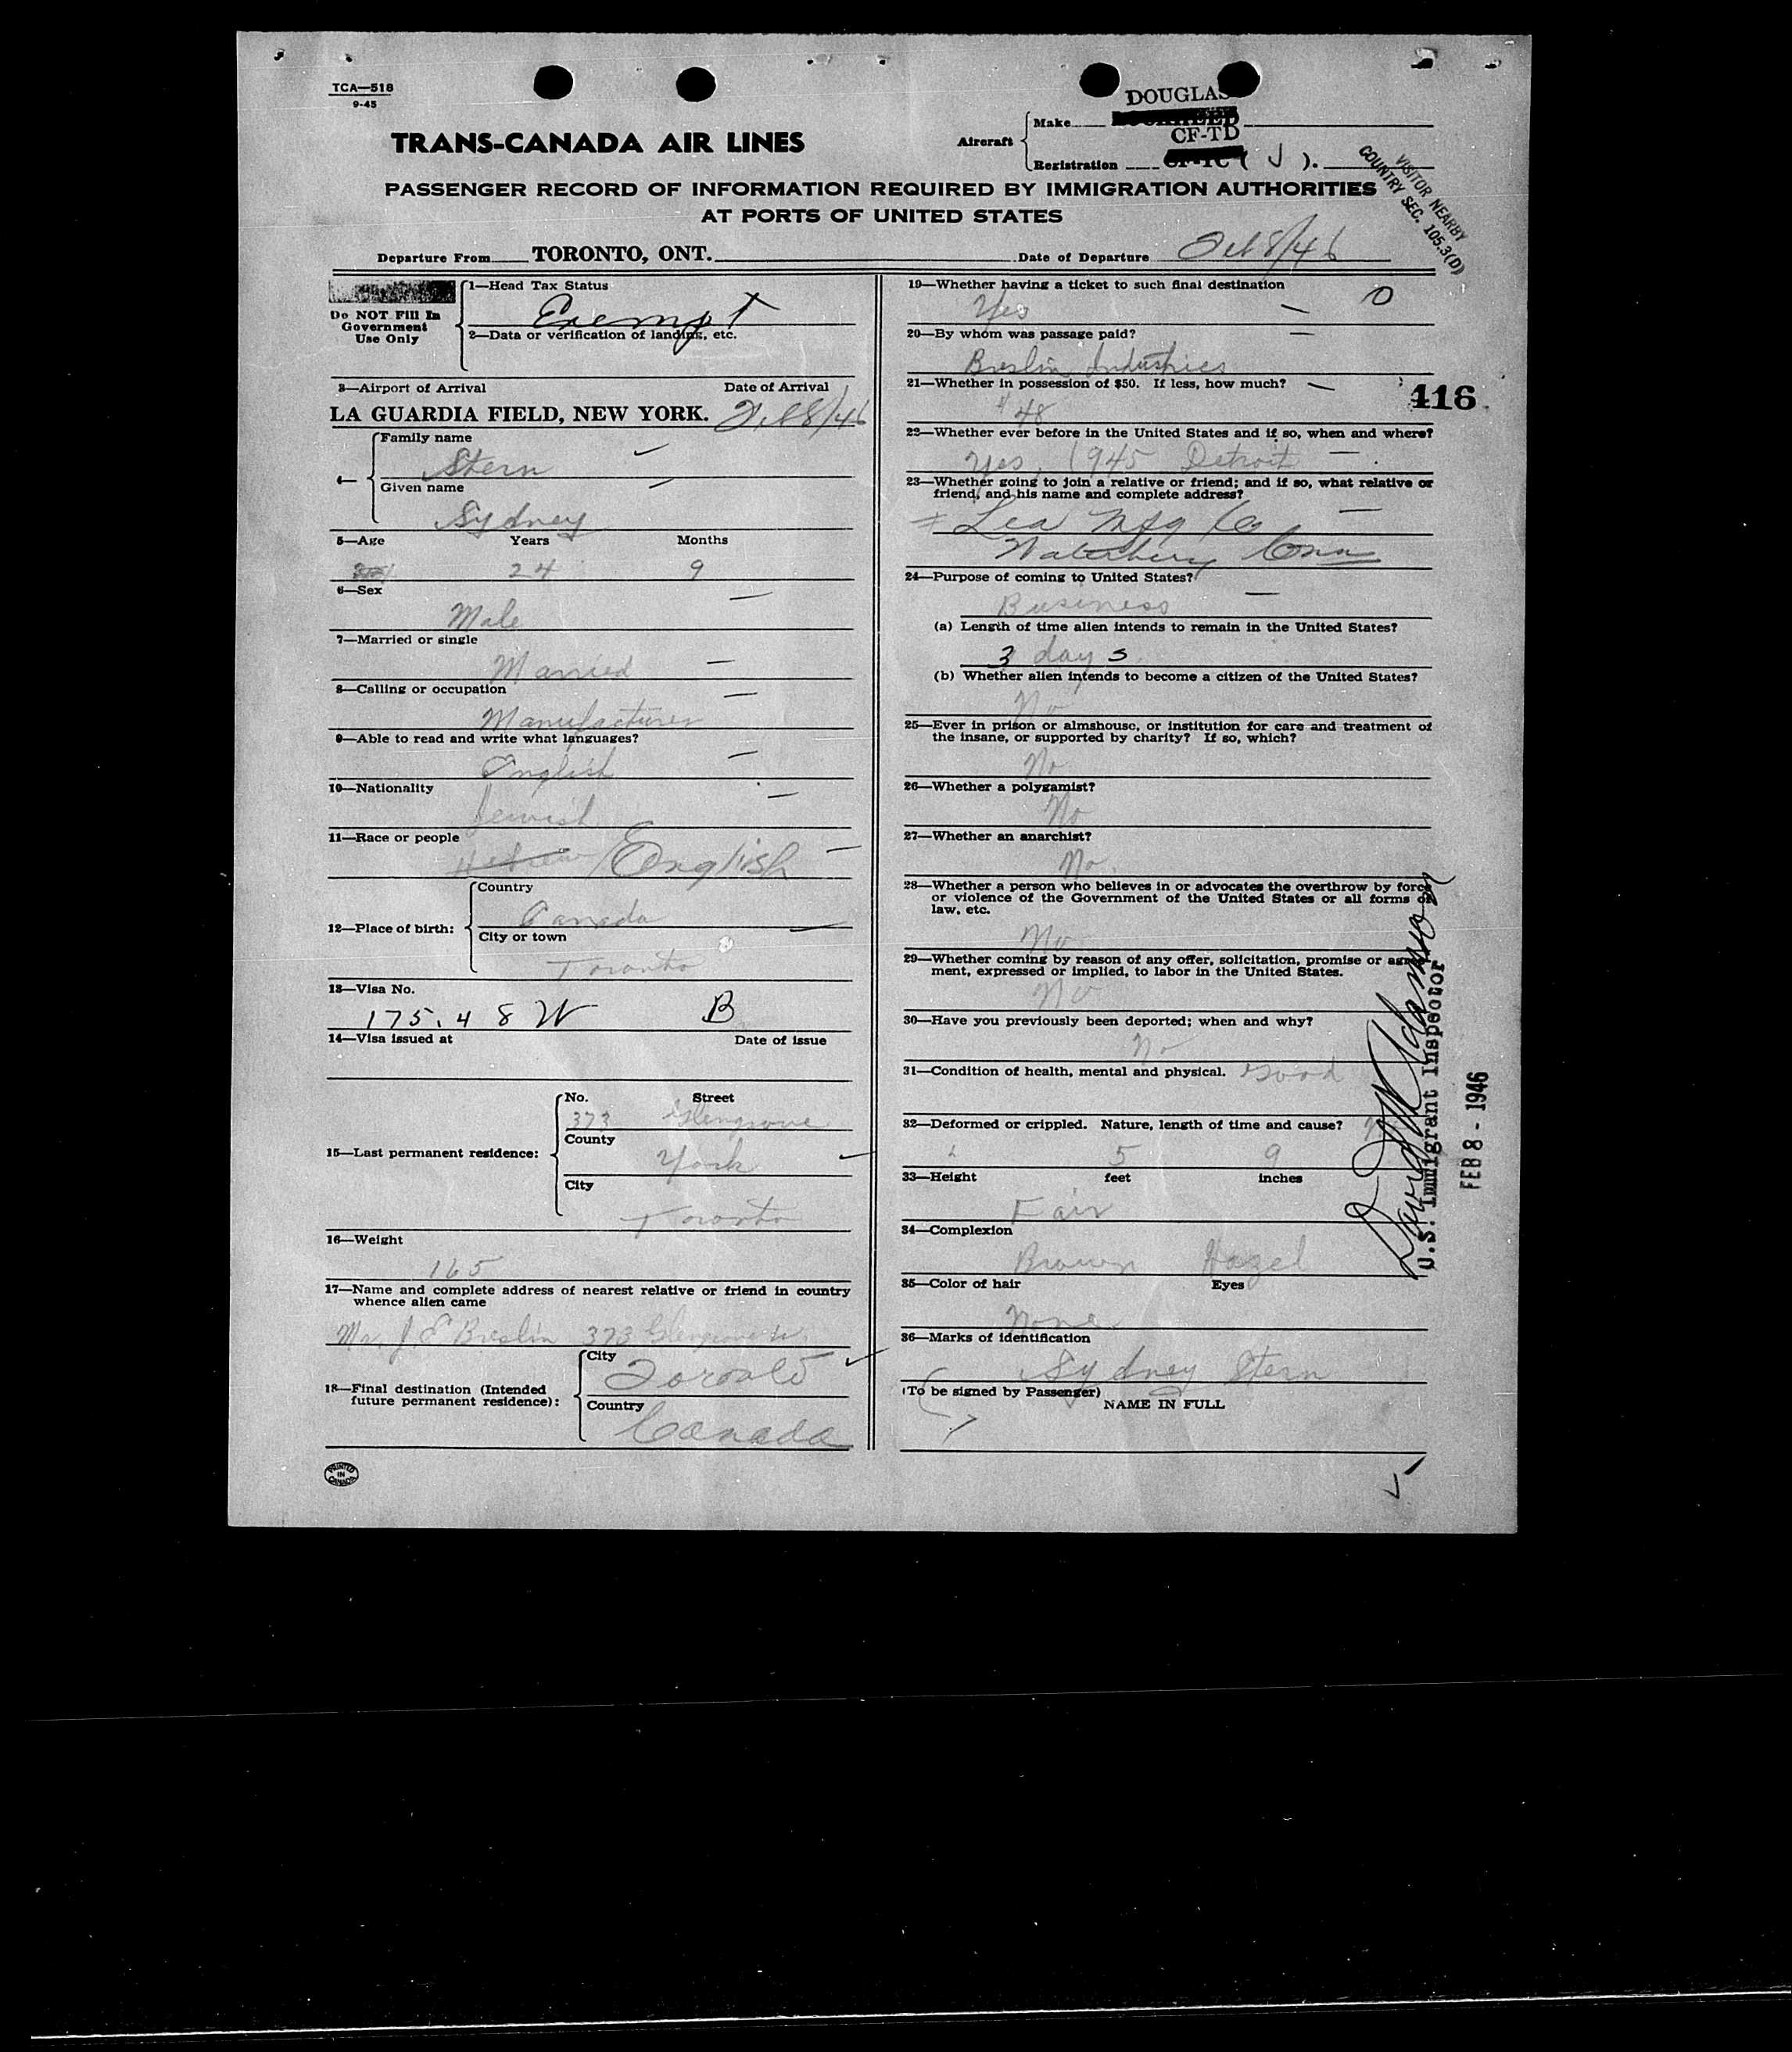 TCA—518
9-45
TRANS-CANADA AIR LINES
Aircraft
Make
DOUGLAS
Registration
CF-TD
CF-TC ( J ).
VISITOR NEARBY
COUNTRY SEC. 105.3(D)
PASSENGER RECORD OF INFORMATION REQUIRED BY IMMIGRATION AUTHORITIES
AT PORTS OF UNITED STATES
Departure From TORONTO, ONT. Date of Departure Feb 8/46
Do NOT Fill In
Government
Use Only
1—Head Tax Status
Exempt
2—Data or verification of landing, etc.
3—Airport of Arrival Date of Arrival
LA GUARDIA FIELD, NEW YORK. Feb 8/46
4—
Family name
Stern
Given name
Sydney
5—Age Years Months
24 9
6—Sex
Male
7—Married or single
Married
8—Calling or occupation
Manufacturer
9—Able to read and write what languages?
English
10—Nationality
Jewish
11—Race or people
Hebrew English
12—Place of birth:
Country
Canada
City or town
Toronto
13—Visa No.
175.4 8 W B
14—Visa issued at Date of issue
15—Last permanent residence:
No. Street
373 Glengrove
County
York
City
Toronto
16—Weight
165
17—Name and complete address of nearest relative or friend in country
whence alien came
Mr. J. E Breslin 373 Glengrove W.
18—Final destination (Intended
future permanent residence):
City
Toronto
Country
Canada
PRINTED
IN
CANADA
19—Whether having a ticket to such final destination
Yes
20—By whom was passage paid?
Breslin Industries
21—Whether in possession of $50. If less, how much?
$ 48
416
22—Whether ever before in the United States and if so, when and where?
Yes, 1945 Detroit
23—Whether going to join a relative or friend; and if so, what relative or
friend, and his name and complete address?
Lea Mfg Co
Waterbury Conn
24—Purpose of coming to United States?
Business
(a) Length of time alien intends to remain in the United States?
3 days
(b) Whether alien intends to become a citizen of the United States?
No
25—Ever in prison or almshouse, or institution for care and treatment of
the insane, or supported by charity? If so, which?
No
26—Whether a polygamist?
No
27—Whether an anarchist?
No
28—Whether a person who believes in or advocates the overthrow by force
or violence of the Government of the United States or all forms of
law, etc.
No
29—Whether coming by reason of any offer, solicitation, promise or agree-
ment, expressed or implied, to labor in the United States.
No
30—Have you previously been deported; when and why?
No
31—Condition of health, mental and physical. Good
32—Deformed or crippled. Nature, length of time and cause?
5 9
33—Height feet inches
Fair
34—Complexion
Brown Hazel
35—Color of hair Eyes
None
36—Marks of identification
Sydney Stern
(To be signed by Passenger)
NAME IN FULL
U.S. Immigrant Inspector
FEB 8 - 1946